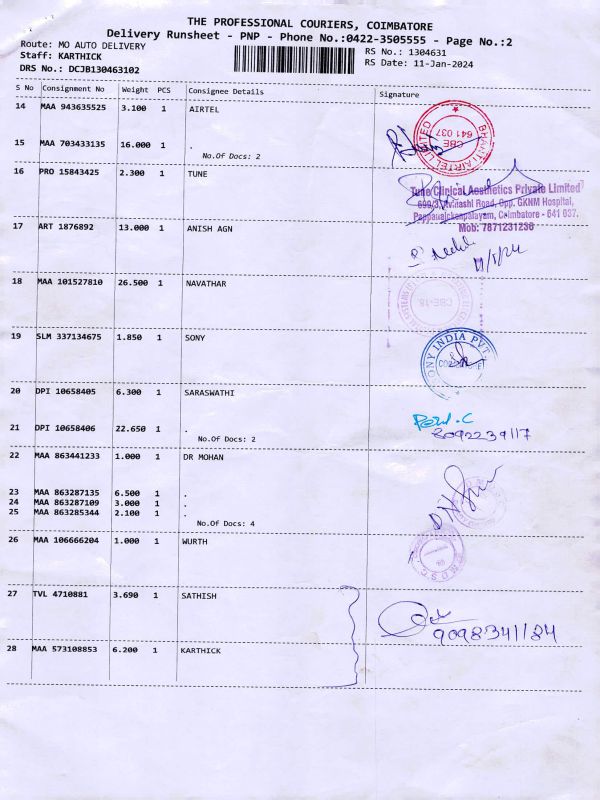 THE PROFESSIONAL COURIERS, COIMBATORE
Delivery Runsheet - PNP - Phone No.:0422-3505555 - Page No.:2
Route: MO AUTO DELIVERY
RS No.: 1304631
Staff: KARTHICK
RS Date: 11-Jan-2024
DRS No.: DCJB130463102
S No Consignment No Weight PCS Consignee Details Signature
14 MAA 943635525 3.100 1 AIRTEL
BHARTI AIRTEL LIMITED
CBE
641 037
15 MAA 703433135 16.000 1 .
No.Of Docs: 2
16 PRO 15843425 2.300 1 TUNE
Tune Clinical Aesthetics Private Limited
699/3, Avinashi Road, Opp. GKNM Hospital,
Pappanaickenpalayam, Coimbatore - 641 037.
Mob: 7871231230
17 ART 1876892 13.000 1 ANISH AGN
11/1/24
18 MAA 101527810 26.500 1 NAVATHAR
CBE-18
19 SLM 337134675 1.850 1 SONY
SONY INDIA PVT
20 DPI 10658405 6.300 1 SARASWATHI
21 DPI 10658406 22.650 1 .
8092239117
No.Of Docs: 2
22 MAA 863441233 1.000 1 DR MOHAN
23 MAA 863287135 6.500 1 .
24 MAA 863287109 3.000 1 .
25 MAA 863285344 2.100 1 .
No.Of Docs: 4
26 MAA 106666204 1.000 1 WURTH
27 TVL 4710881 3.690 1 SATHISH
9098341184
28 MAA 573108853 6.200 1 KARTHICK